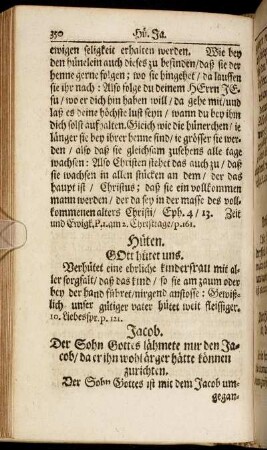 350 Hü. Ja.
ewigen seligkeit erhalten werden. Wie bey
den hünelein auch dieses zu befinden/ daß sie der
henne gerne folgen; wo sie hingehet/ da lauffen
sie ihr nach: Also folge du deinem HErrn JE-
su/ wo er dich hin haben will/ da gehe mit/ und
laß es deine höchste lust seyn/ wann du bey ihm
dich solst aufhalten. Gleich wie die hünerchen/ ie
länger sie bey ihrer henne sind/ ie grösser sie wer-
den/ also daß sie gleichsam zusehens alle tage
wachsen: Also Christen stehet das auch zu/ daß
sie wachsen in allen stücken an dem/ der das
haupt ist/ Christus; daß sie ein vollkommen
mann werden/ der da sey in der masse des voll-
kommenen alters Christi/ Eph. 4/ 13. Zeit
und Ewigk. P. 2. am 2. Christtage/ p. 161.
Hüten.
GOtt hütet uns.
Verhütet eine ehrliche kinderfrau mit al-
ler sorgfalt/ daß das kind/ so sie am zaum oder
bey der hand führet/ nirgend anstosse: Gewiß-
lich unser gütiger vater hütet weit fleissiger.
10. Liebesspr. p. 121.
Jacob.
Der Sohn Gottes lähmete nur den Ja-
cob/ da er ihn wohl ärger hätte können
zurichten.
Der Sohn Gottes ist mit dem Jacob um-
gegan-